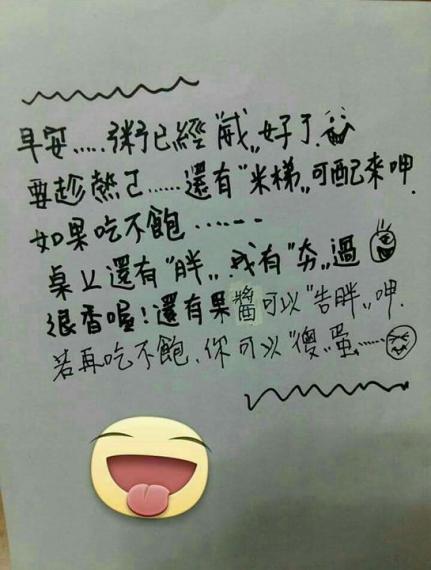 早安.....粥已經" "好了.
要趁熱ㄛ......還有"米梯"可配來呷.
如果吃不飽.......
桌上還有"胖".我有"夯"過
很香喔!還有果醬可以"告胖"呷.
若再吃不飽.你可以"傻"蛋......